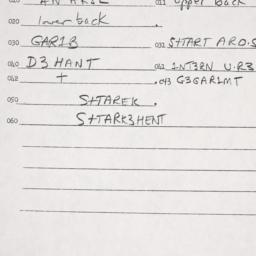 011 upper back
020 lower back
030 GAR13 031 STTART ARO.S
040 D3 HANT 041 1NT3RN U.R3
042 + .043 G3GAR1MT
050 S+TAREK .
060 S+TARK3HENT